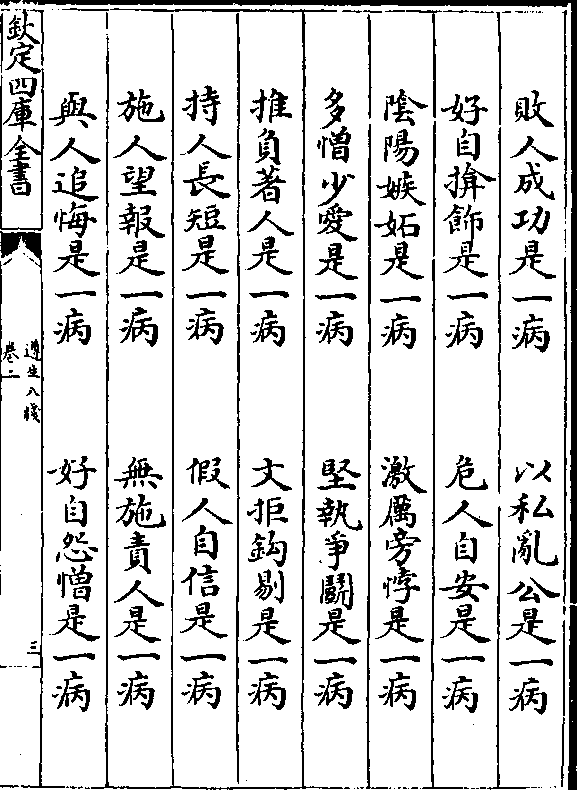 敗人成功是一病　以私亂公是一病
好自揜飾是一病　危人自安是一病
陰陽嫉妬是一病　激厲旁悖是一病
多憎少愛是一病　堅執爭鬭是一病
推負著人是一病　文拒鈎剔是一病
持人長短是一病　假人自信是一病
施人望報是一病　無施責人是一病
與人追悔是一病　好自怨憎是一病
欽定四庫全書
遵生八牋
卷二
三